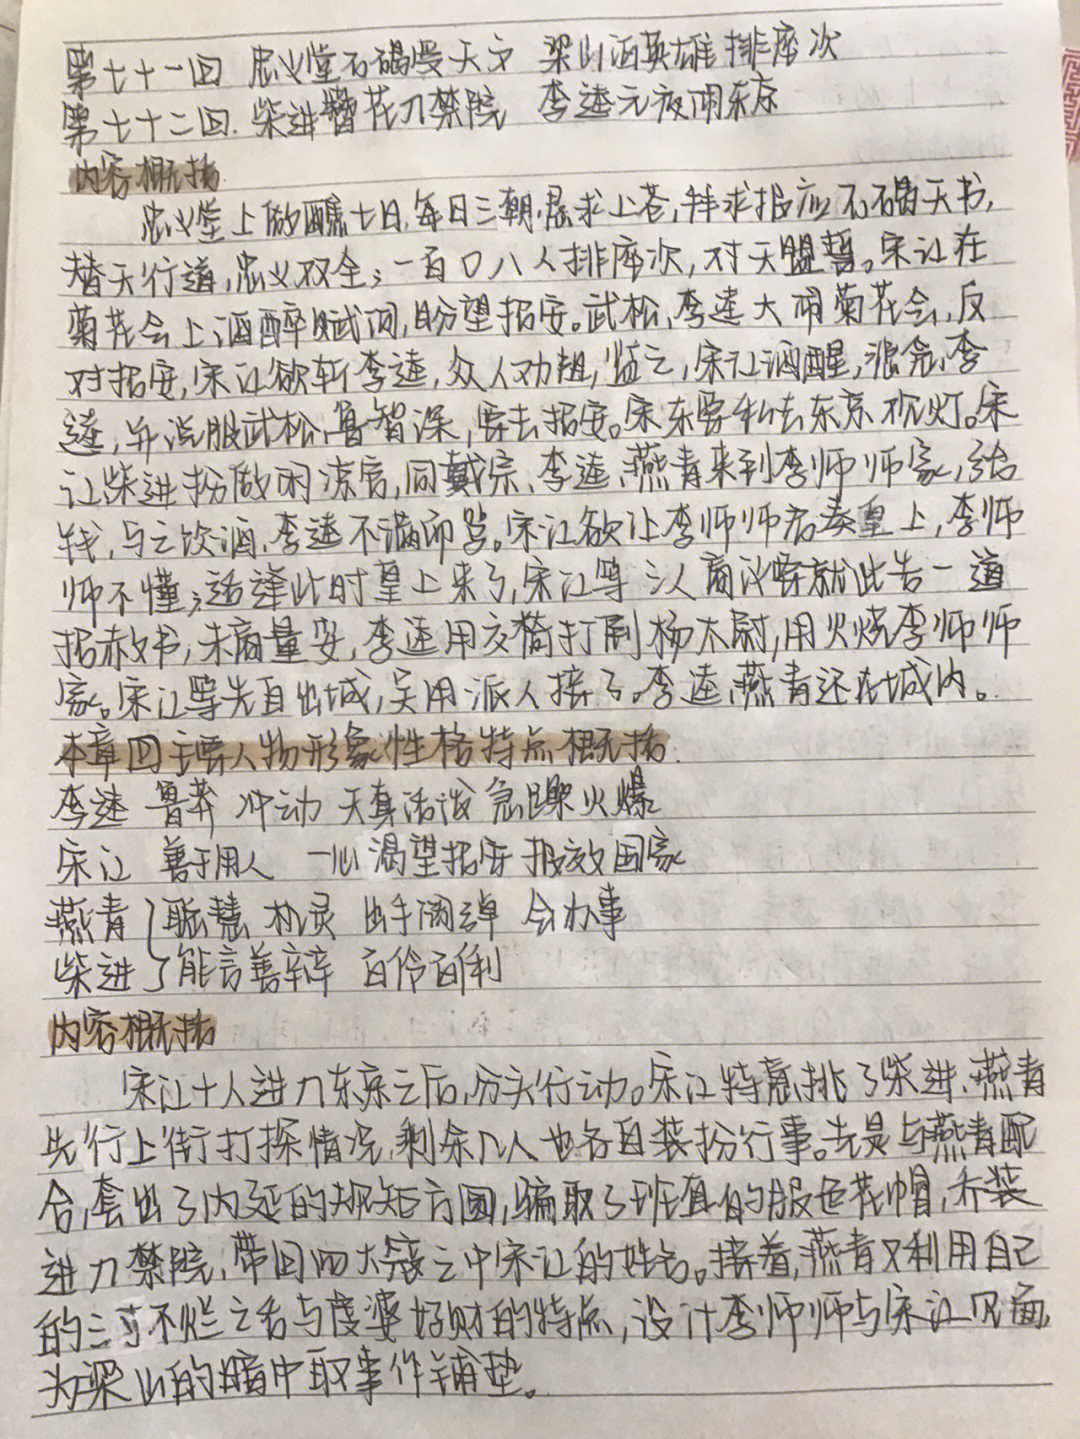 第七十一回 忠义堂石碣受天文 梁山泊英雄排座次
第七十二回.柴进簪花入禁院 李逵元夜闹东京
内容概括
忠义堂上做醮七日,每日三朝,恳求上苍,拜求报应石碣天书,
替天行道,忠义双全;一百〇八人排座次,对天盟誓。宋江在
菊花会上酒醉赋词,盼望招安。武松、李逵大闹菊花会,反
对招安,宋江欲斩李逵,众人劝阻,监之,宋江酒醒,李
逵,并说服武松、鲁智深,要去招安。宋东要私去东京观灯。宋
江柴进扮做闲凉官,同戴宗、李逵、燕青来到李师师家,给
钱,与之饮酒,李逵不满而骂。宋江欲让李师师启奏皇上,李师
师不懂;适逢此时皇上来了,宋江等三人商议要就此告一道
招赦书,未商量妥,李逵用交椅打倒杨太尉,用火烧李师师
家。宋江等先自出城,吴用派人接了。李逵、燕青还在城内。
本章回主要人物形象性格特点概括.
李逵 鲁莽 冲动 天真活泼 急躁火爆
宋江 善于用人 一心渴望招安 报效国家
燕青 聪慧 机灵 出手阔绰 会办事
柴进 能言善辩 百伶百利
内容概括
宋江十人进入东京之后,分头行动。宋江特意挑了柴进、燕青
先行上街打探情况,剩余几人也各自装扮行事。先是与燕青配
合,套出了内廷的规矩方圆,骗取了班直的服色花帽,乔装
进入禁院,带回四大寇之中宋江的姓名。接着,燕青又利用自己
的三寸不烂之舌与虔婆好财的特点,设计李师师与宋江见面,
为梁山的暗中取事作铺垫。